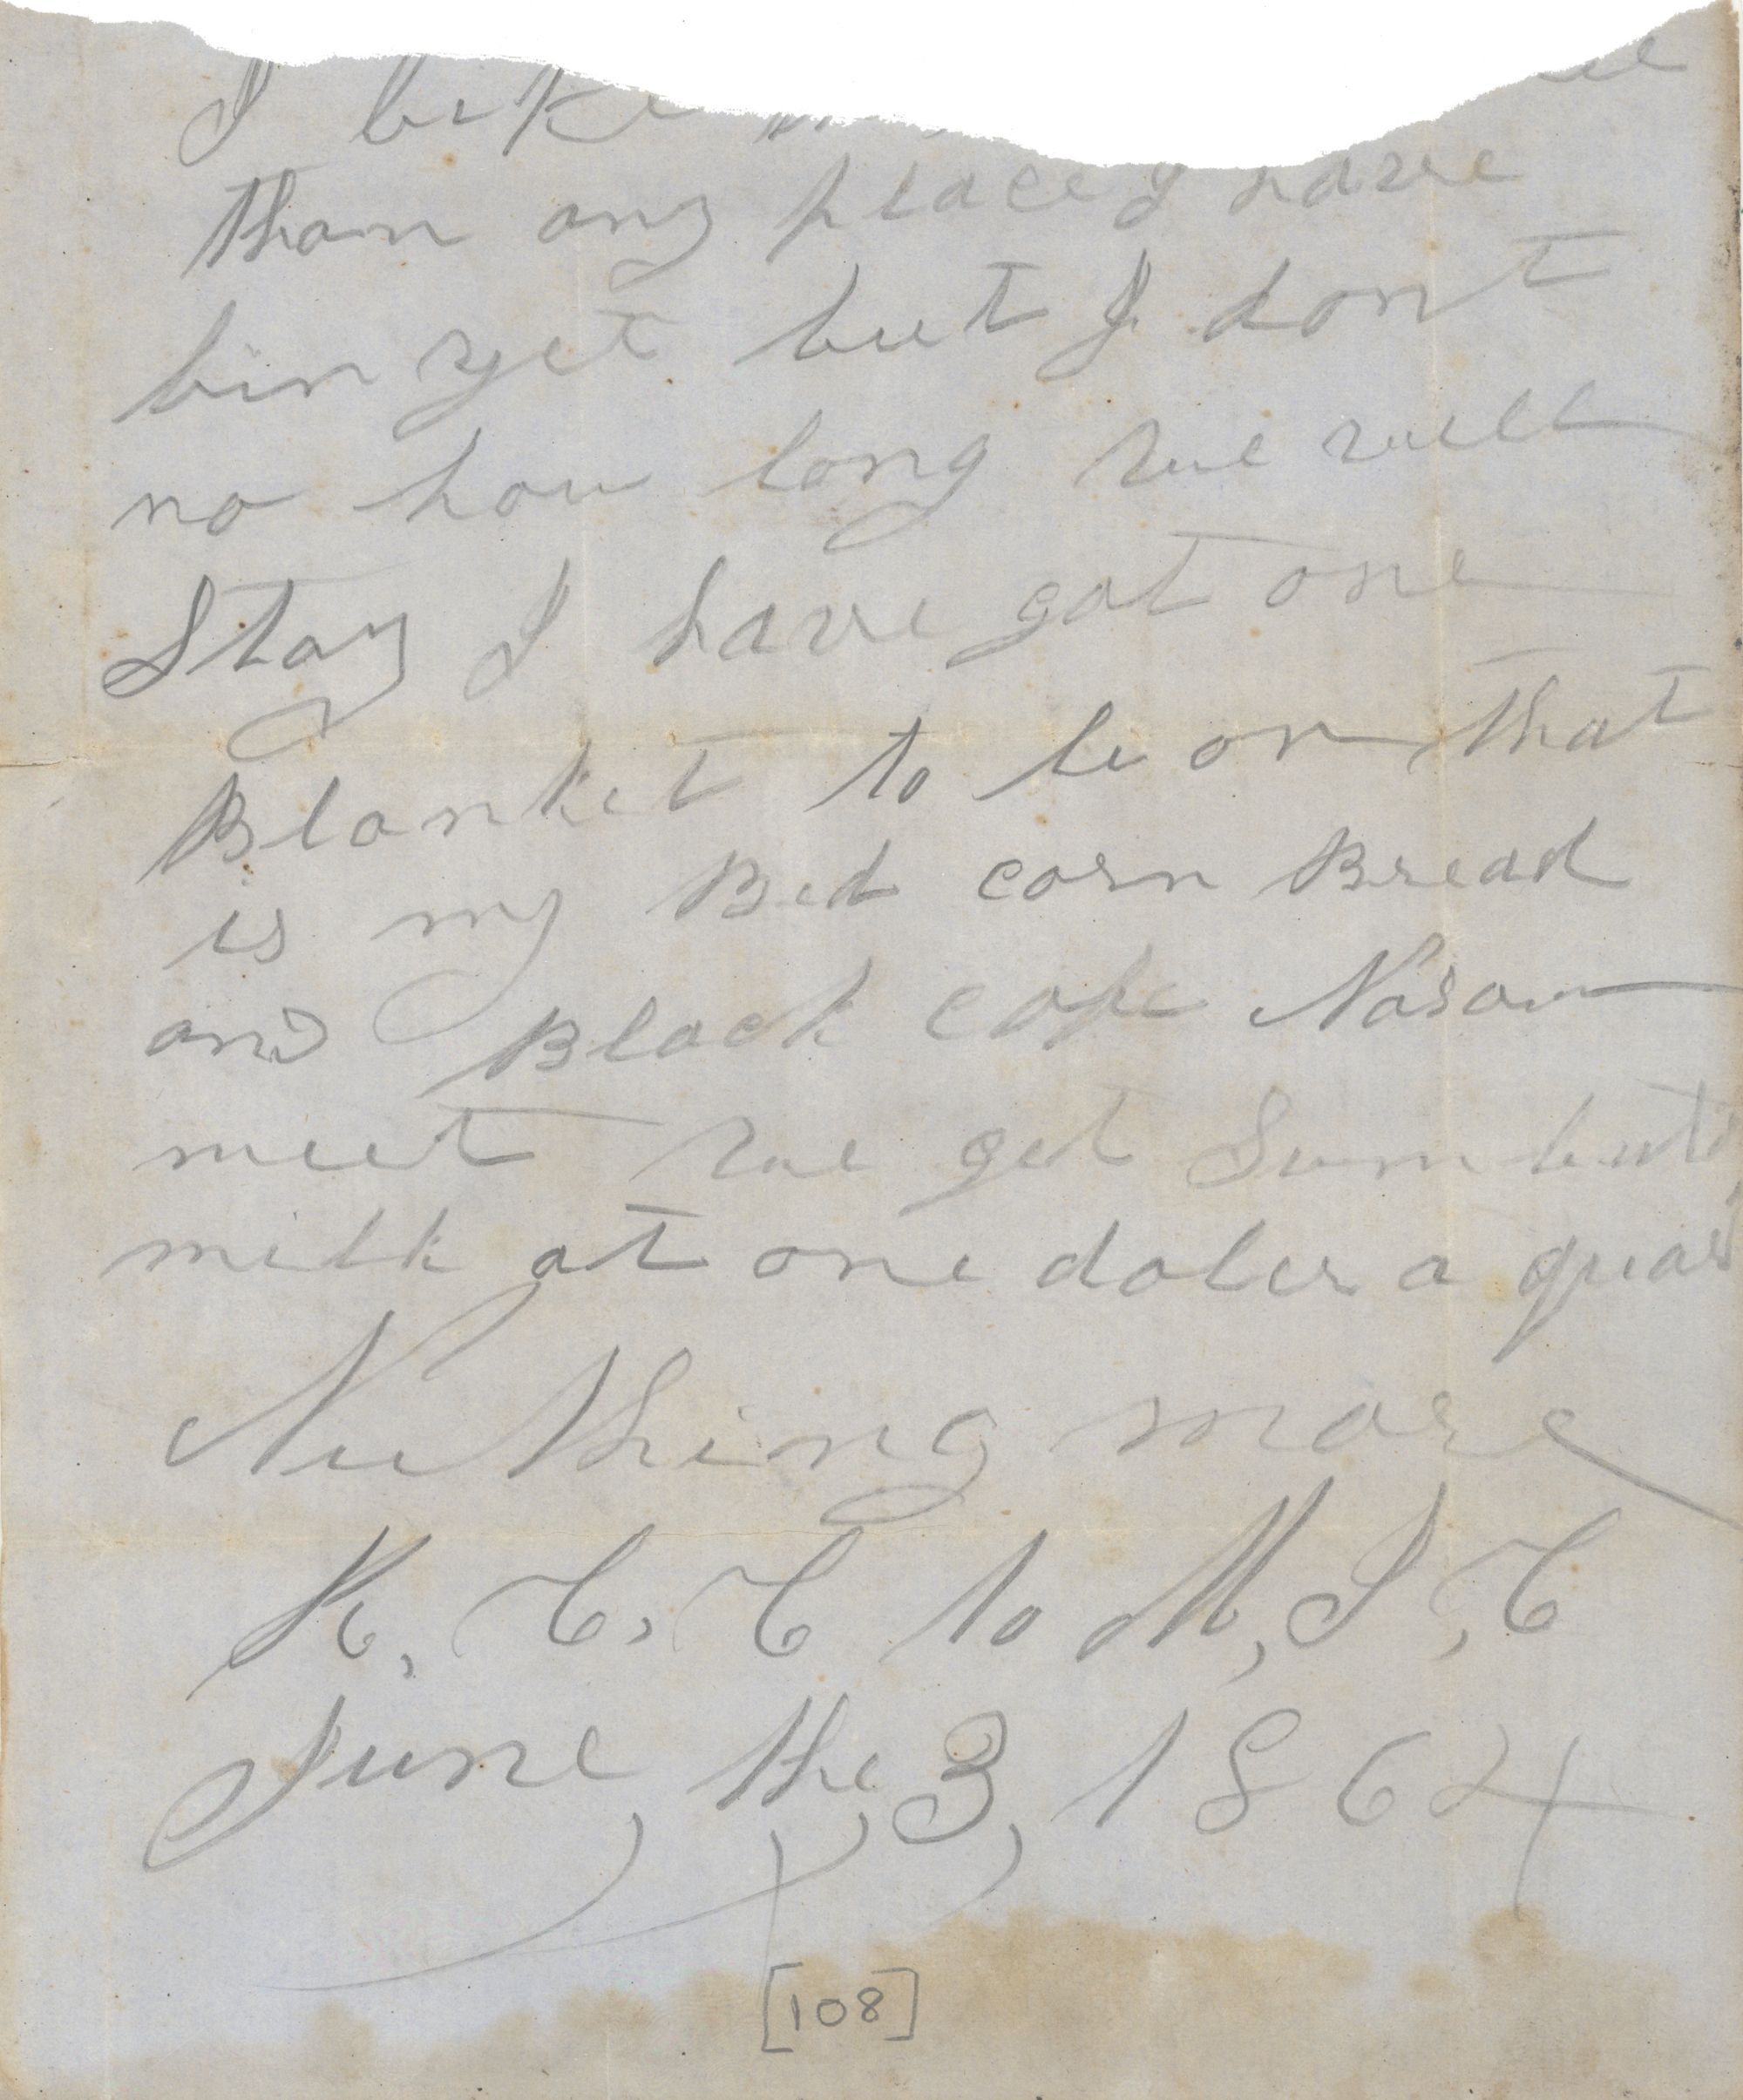 I like
than any place I have
bin yet but I dont
no how long we will
Stay I have got one
Blanket to le on that
is my Bed corn Bread
and Black cofe No
meet we get Sum
milk at one doler a
Nuthing more
K, C, C to M, J, C
June, the, 3, 1864
[108]